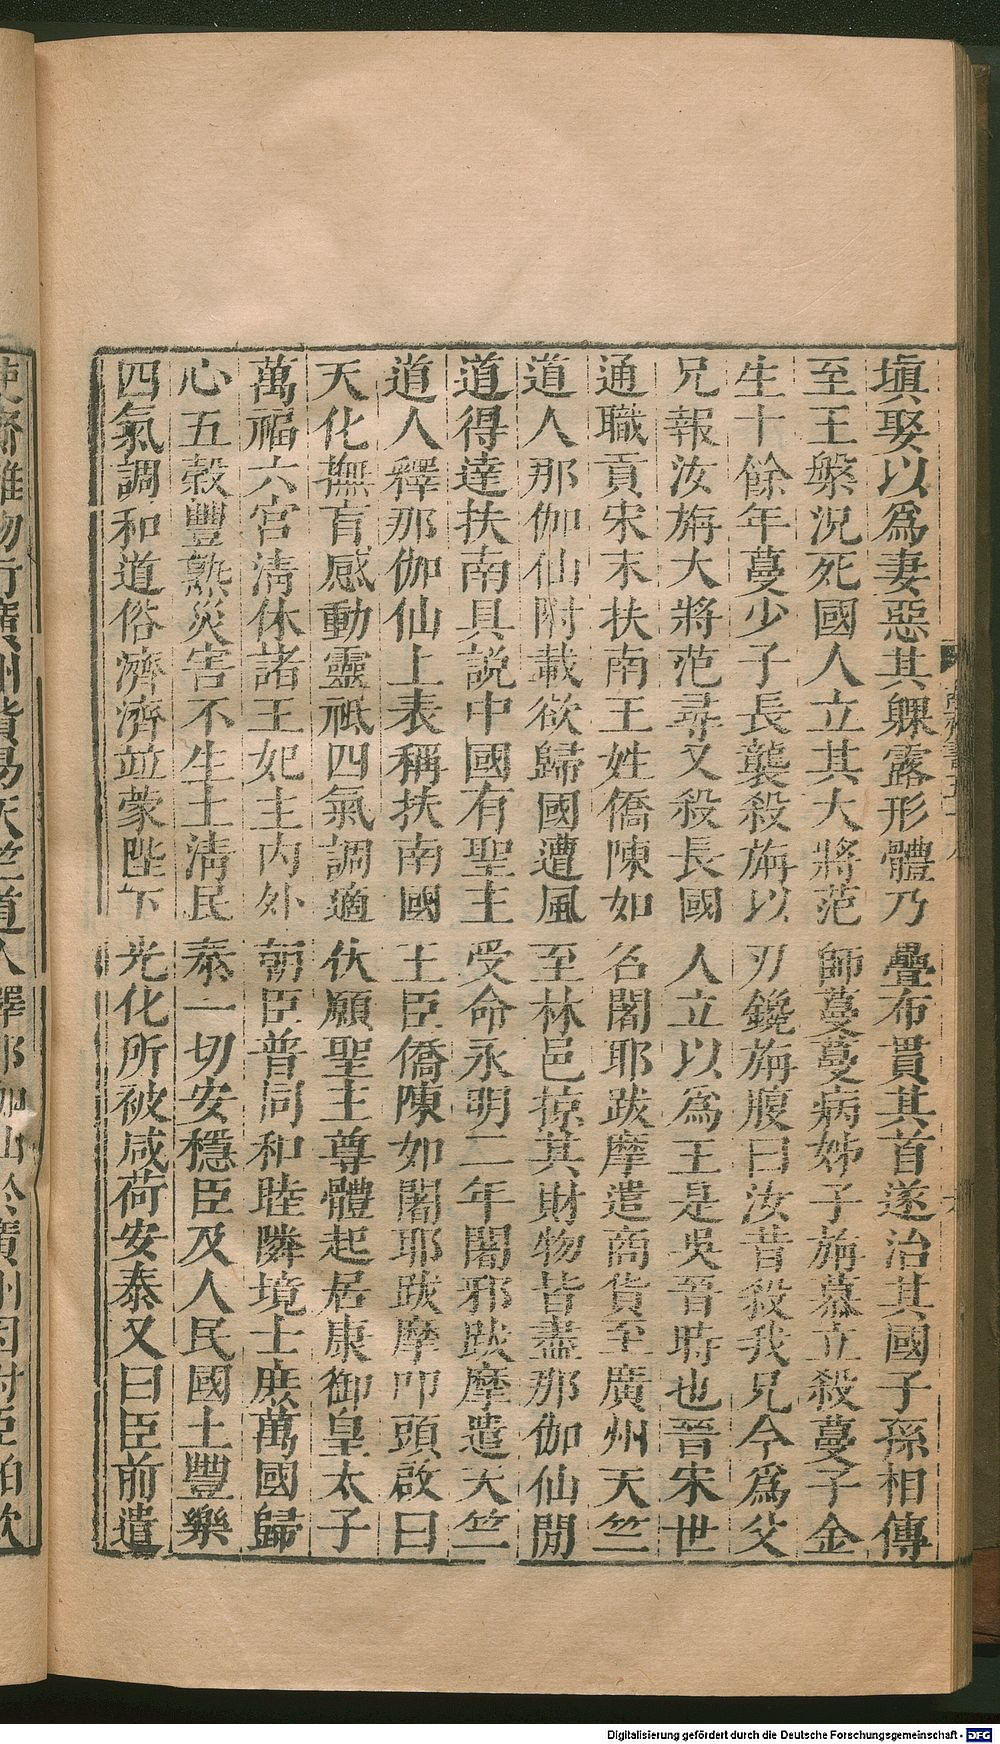 塡娶以爲妻惡其躶露形體乃疊布貫其首遂治其國子孫相傳
至王槃況死國人立其大將范師蔓蔓病姊子旃慕立殺蔓子金
生十餘年蔓少子長襲殺旃以刃鑱旃腹曰汝昔殺我兄今爲父
兄報汝旃大將范尋又殺長國人立以爲王是吳晉時也晉宋世
通職貢宋末扶南王姓僑陳如名闍耶跋摩遣商貨至廣州天竺
道人那伽仙附載欲歸國遭風至林邑掠其財物皆盡那伽仙閒
道得達扶南具説中國有聖主受命永明二年闍邪跋摩遣天竺
道人釋那伽仙上表稱扶南國王臣僑陳如闍耶跋摩叩頭啟曰
天化撫育感動靈祗四氣調適伏願聖主尊體起居康御皇太子
萬福六宮淸休諸王妃主內外朝臣普同和睦隣境士庶萬國歸
心五穀豐熟災害不生土淸民泰一切安穩臣及人民國土豐樂
四氣調和道俗濟濟竝蒙陛下光化所被咸荷安泰又曰臣前遣
使齎雜物行廣州貨易天竺道人釋那伽仙於廣州因附臣舶欲
Digitalisierung gefördert durch die Deutsche Forschungsgemeinschaft - DFG